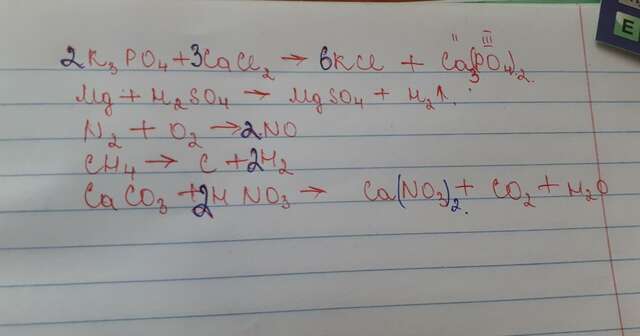 E
II III
2K₃PO₄+3CaCl₂ → 6KCl + Ca₃(PO₄)₂.
Mg + H₂SO₄ → MgSO₄ + H₂↑.
N₂ + O₂ → 2NO
CH₄ → C + 2H₂
CaCO₃ + 2HNO₃ → Ca(NO₃)₂ + CO₂ + H₂O